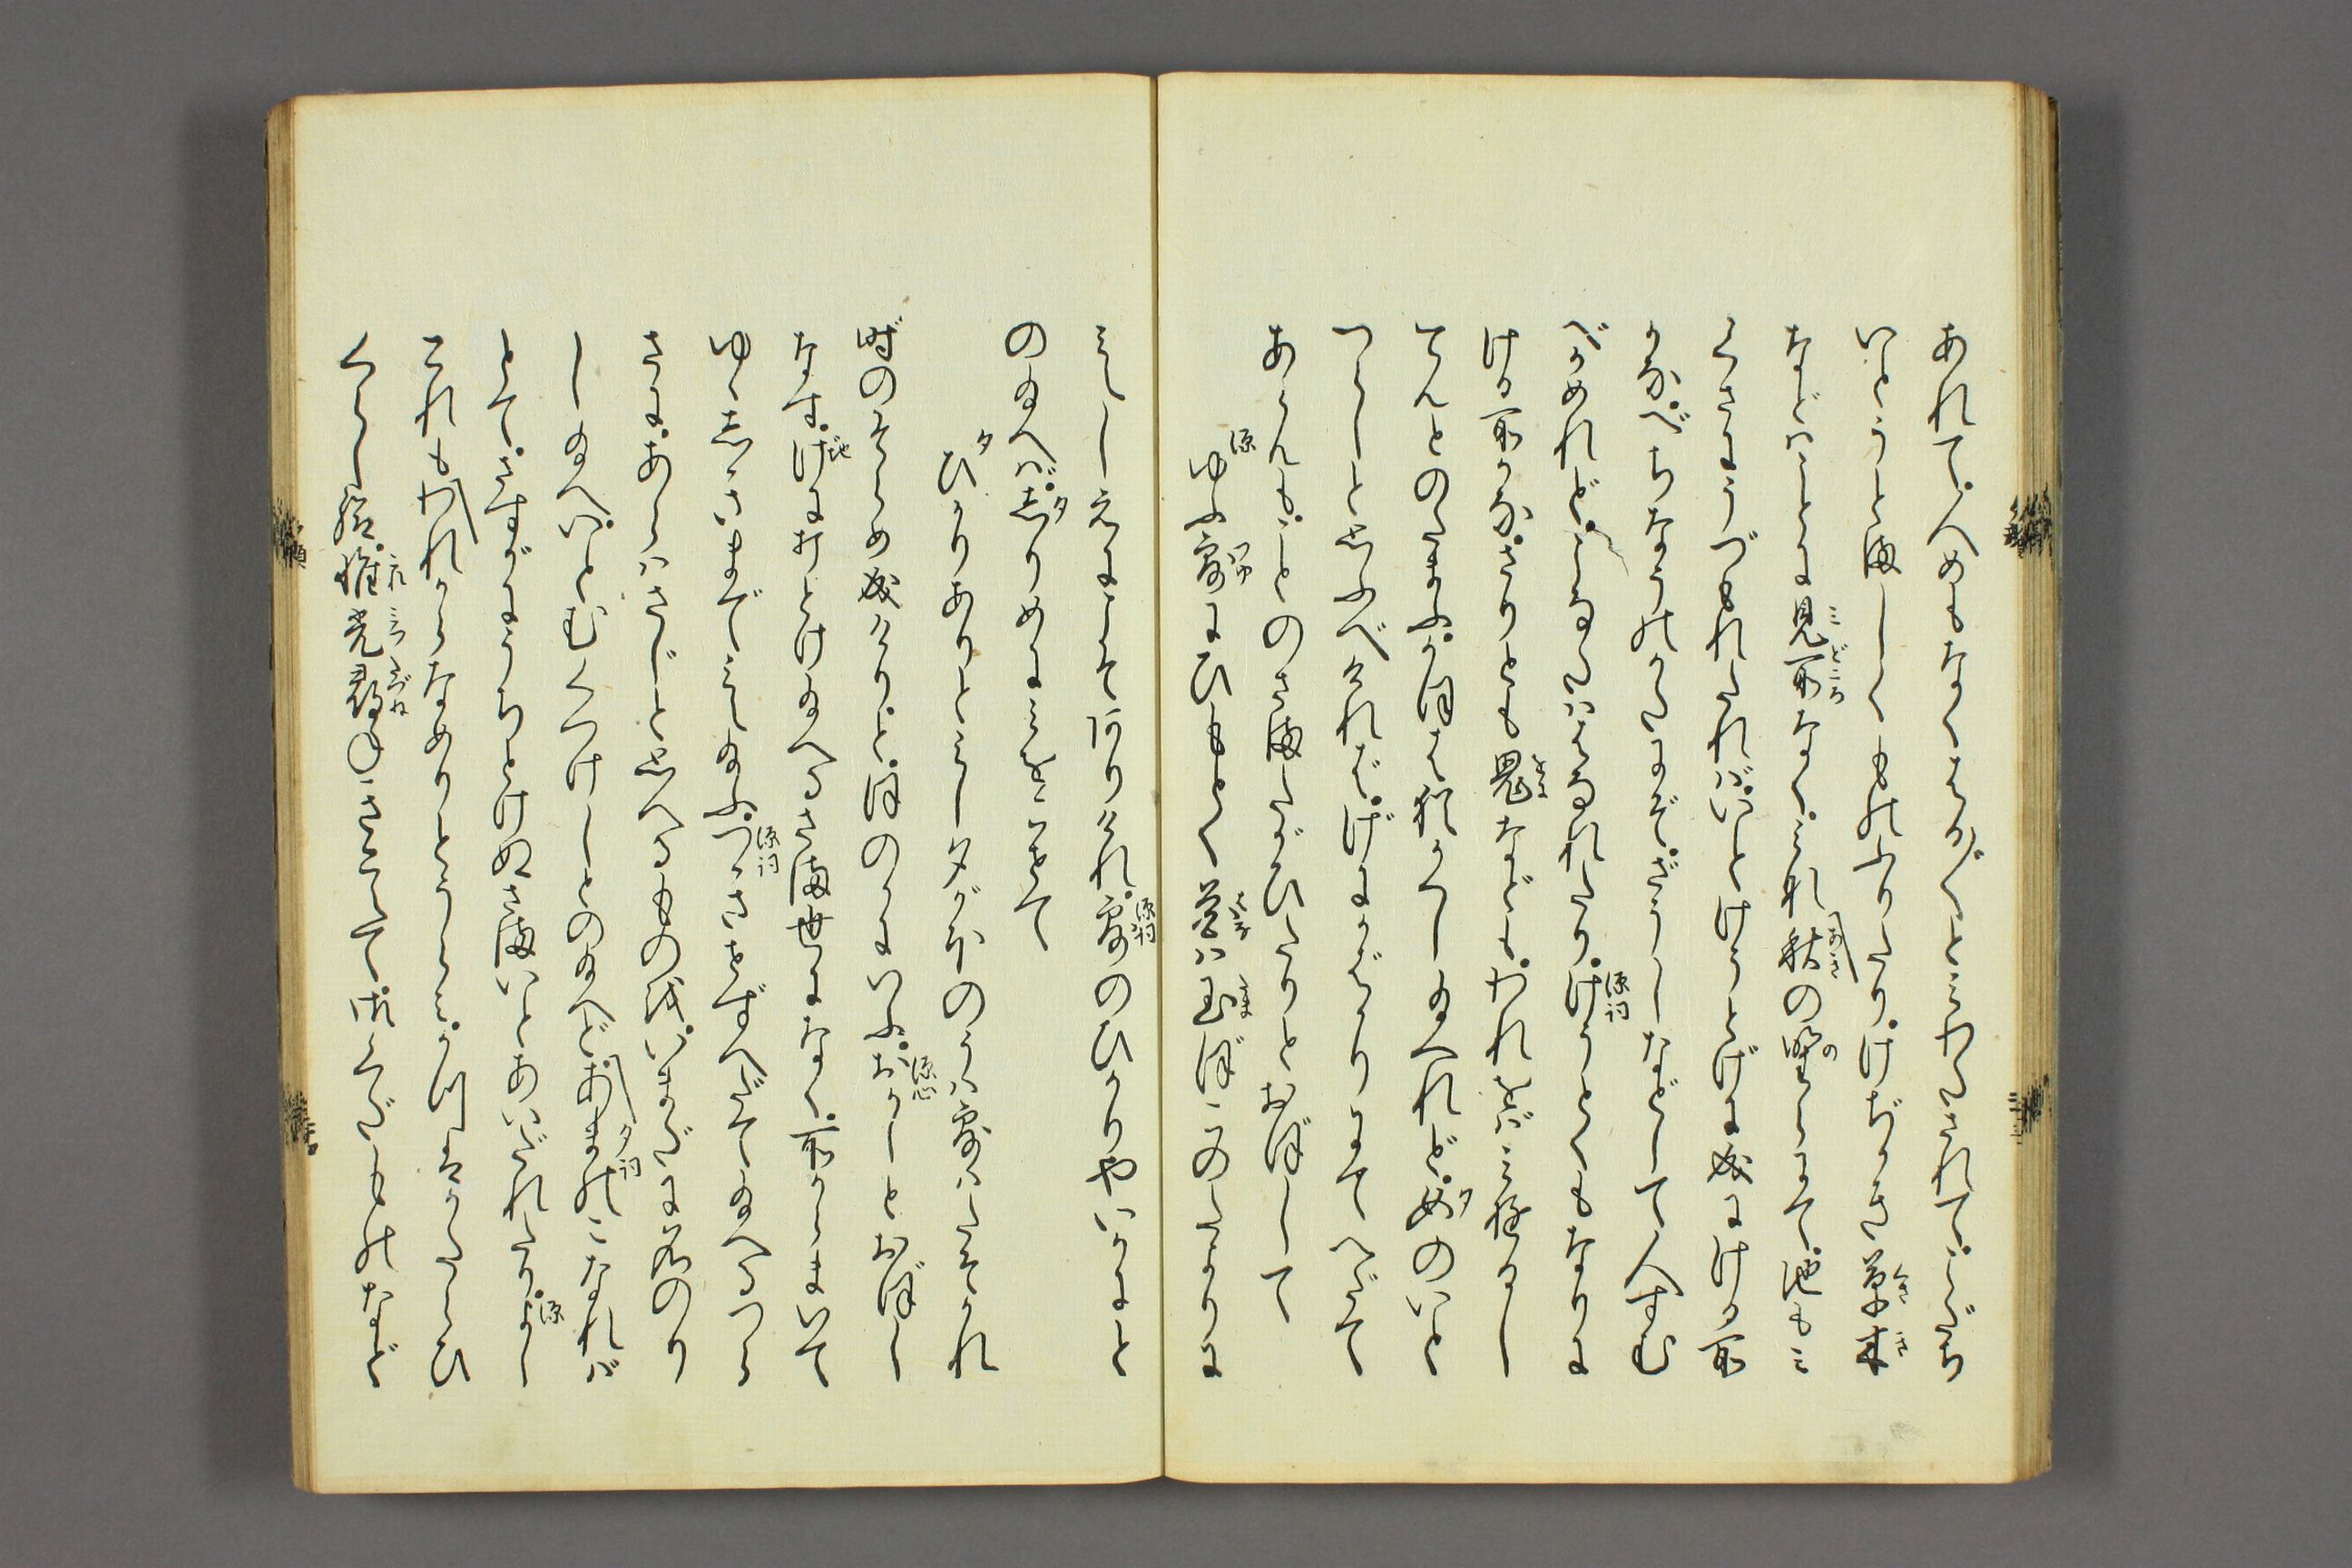 あれて。人めもなくはる〲と見わたされて。こだち
いとうとましくものふりたり。けぢかき草木
などはことに見所なく。みな秋の野らにて。池もみ
くさにうづもれたれば。いとけうとげに成にける所
かな。べちなうのかたにぞ。ざうしなどして人すむ
べかめれど。こなたははなれたり。けうとくもなりに
ける所かな。さりとも鬼なども。われをば見ゆるし
てんとのたまふ。かほは猶かくし給へれど。女のいと
つらしと思ふべければ。げにかばかりにてへだて
あらんも。ことのさまにたがひたりとおぼして
ゆふ露にひもとく花は玉ぼこのたよりに
見えしえにこそ有けれ。露のひかりやいかにと
の給へば。しりめに見をこせて
ひかりありと見し夕がほのうは露はたそかれ
時のそらめ成けりと。ほのかにいふ。おかしとおぼし
なす。げにうちとけ給へるさま世になく。所からまいて
ゆゝしきまで見え給ふ。つきせずへだて給へるつら
さに。あらはさじと思へるものを。いまだに名のり
し給へ。いとむくつけしとの給へど。あまのこなれば
とて。さすがにうちとけぬさまいとあいだれたり。よし
これもわれからなめりとうらみ。かつはかたらひ
くらし給。惟光尋きこえて。御くだものなど